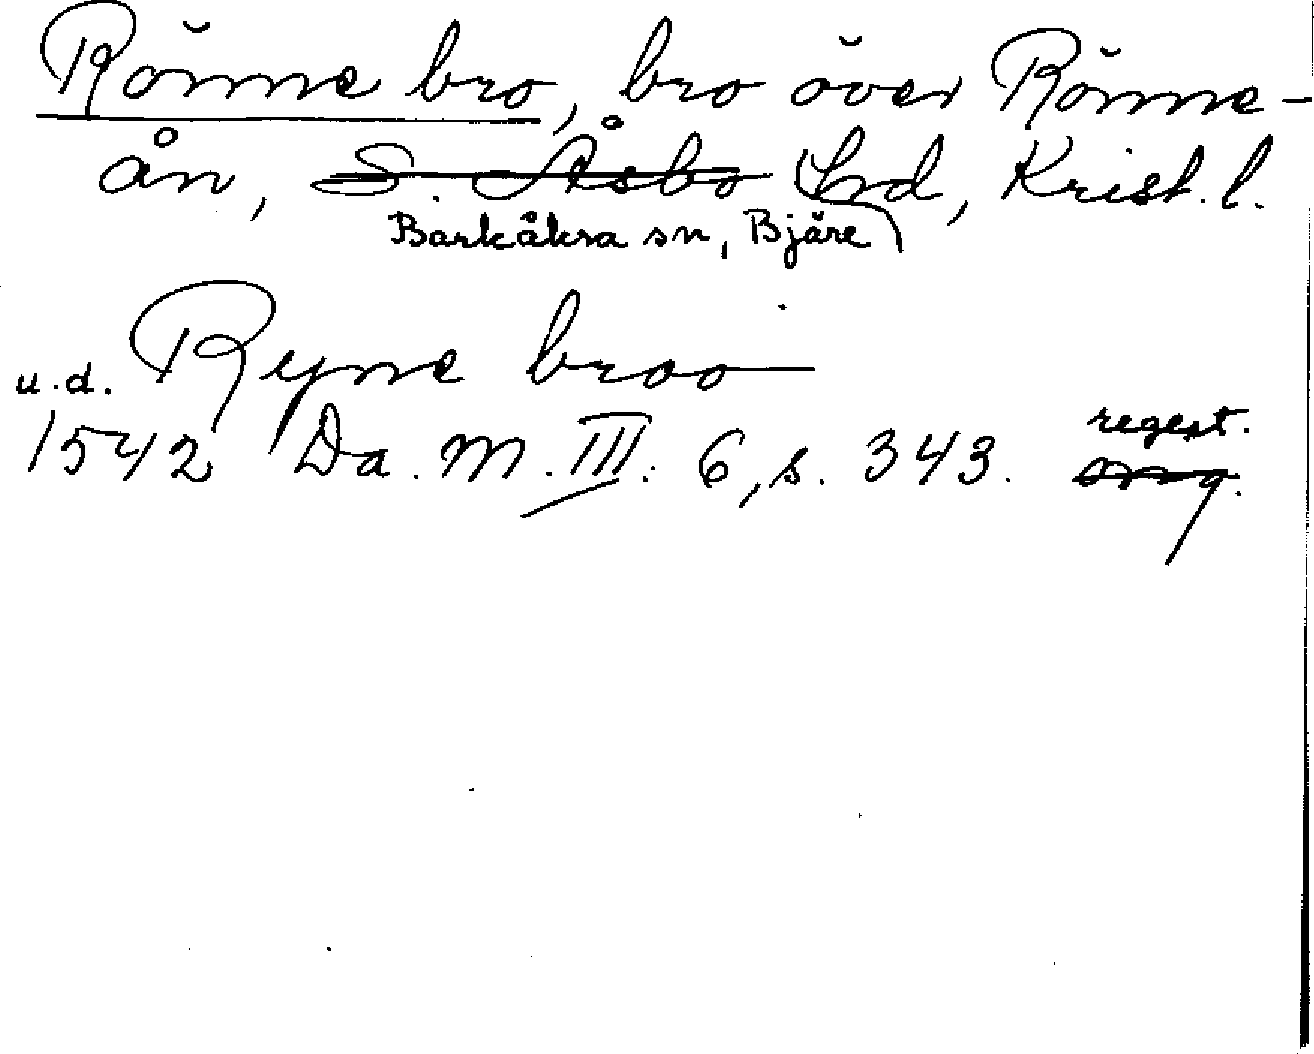 Rönne bro, bro över Rönne-
ån, S. Åsbo hd, Krist. l.
Barkåkra sn, Bjäre
u.d. Ryne broo
1542 Da. M. III: 6, s. 343. regest.